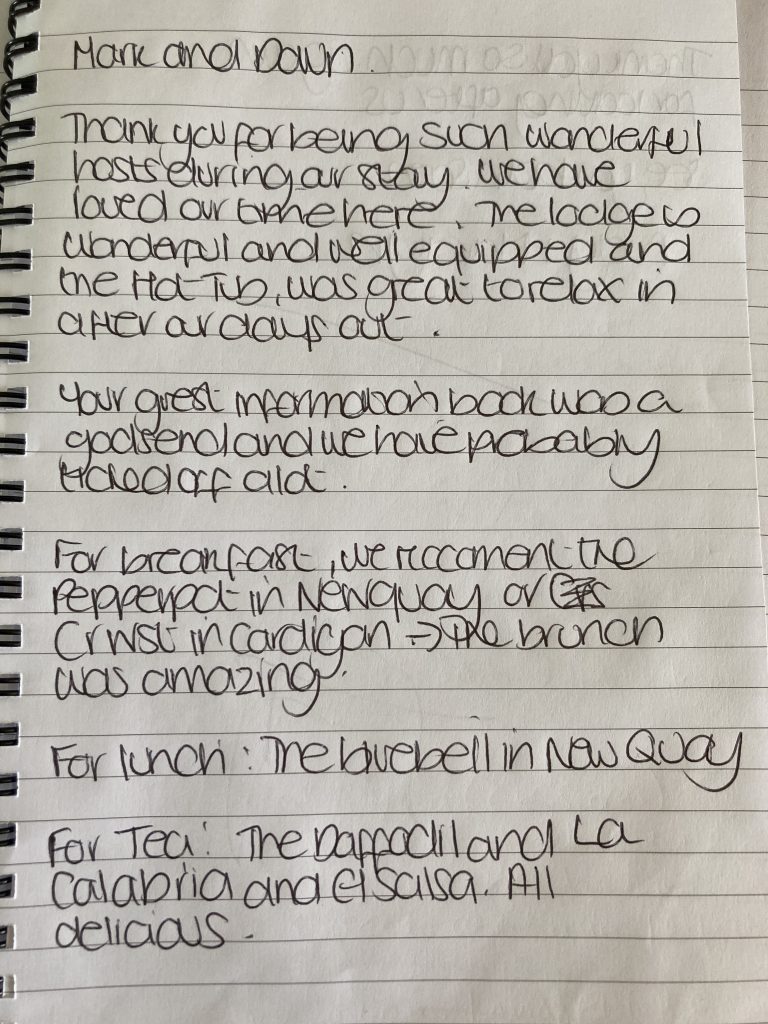 Mark and Dawn.
Thank you for being such wonderful
hosts during our stay. We have
loved our time here. The lodge is
wonderful and well equipped and
the Hot Tub, was great to relax in
after our days out.
Your guest information book was a
godsend and we have probably
ticked off a lot.
For breakfast, we reccoment the
Pepperpot in Newquay or
Crwst in Cardigan → The brunch
was amazing.
For lunch: The bluebell in New Quay
For Tea: The Daffodil and La
Calabria and El Salsa. All
delicious.